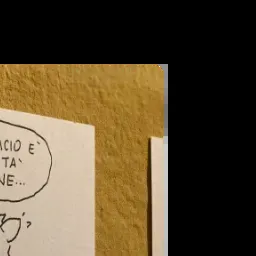 CIO E`
TA`
NE...